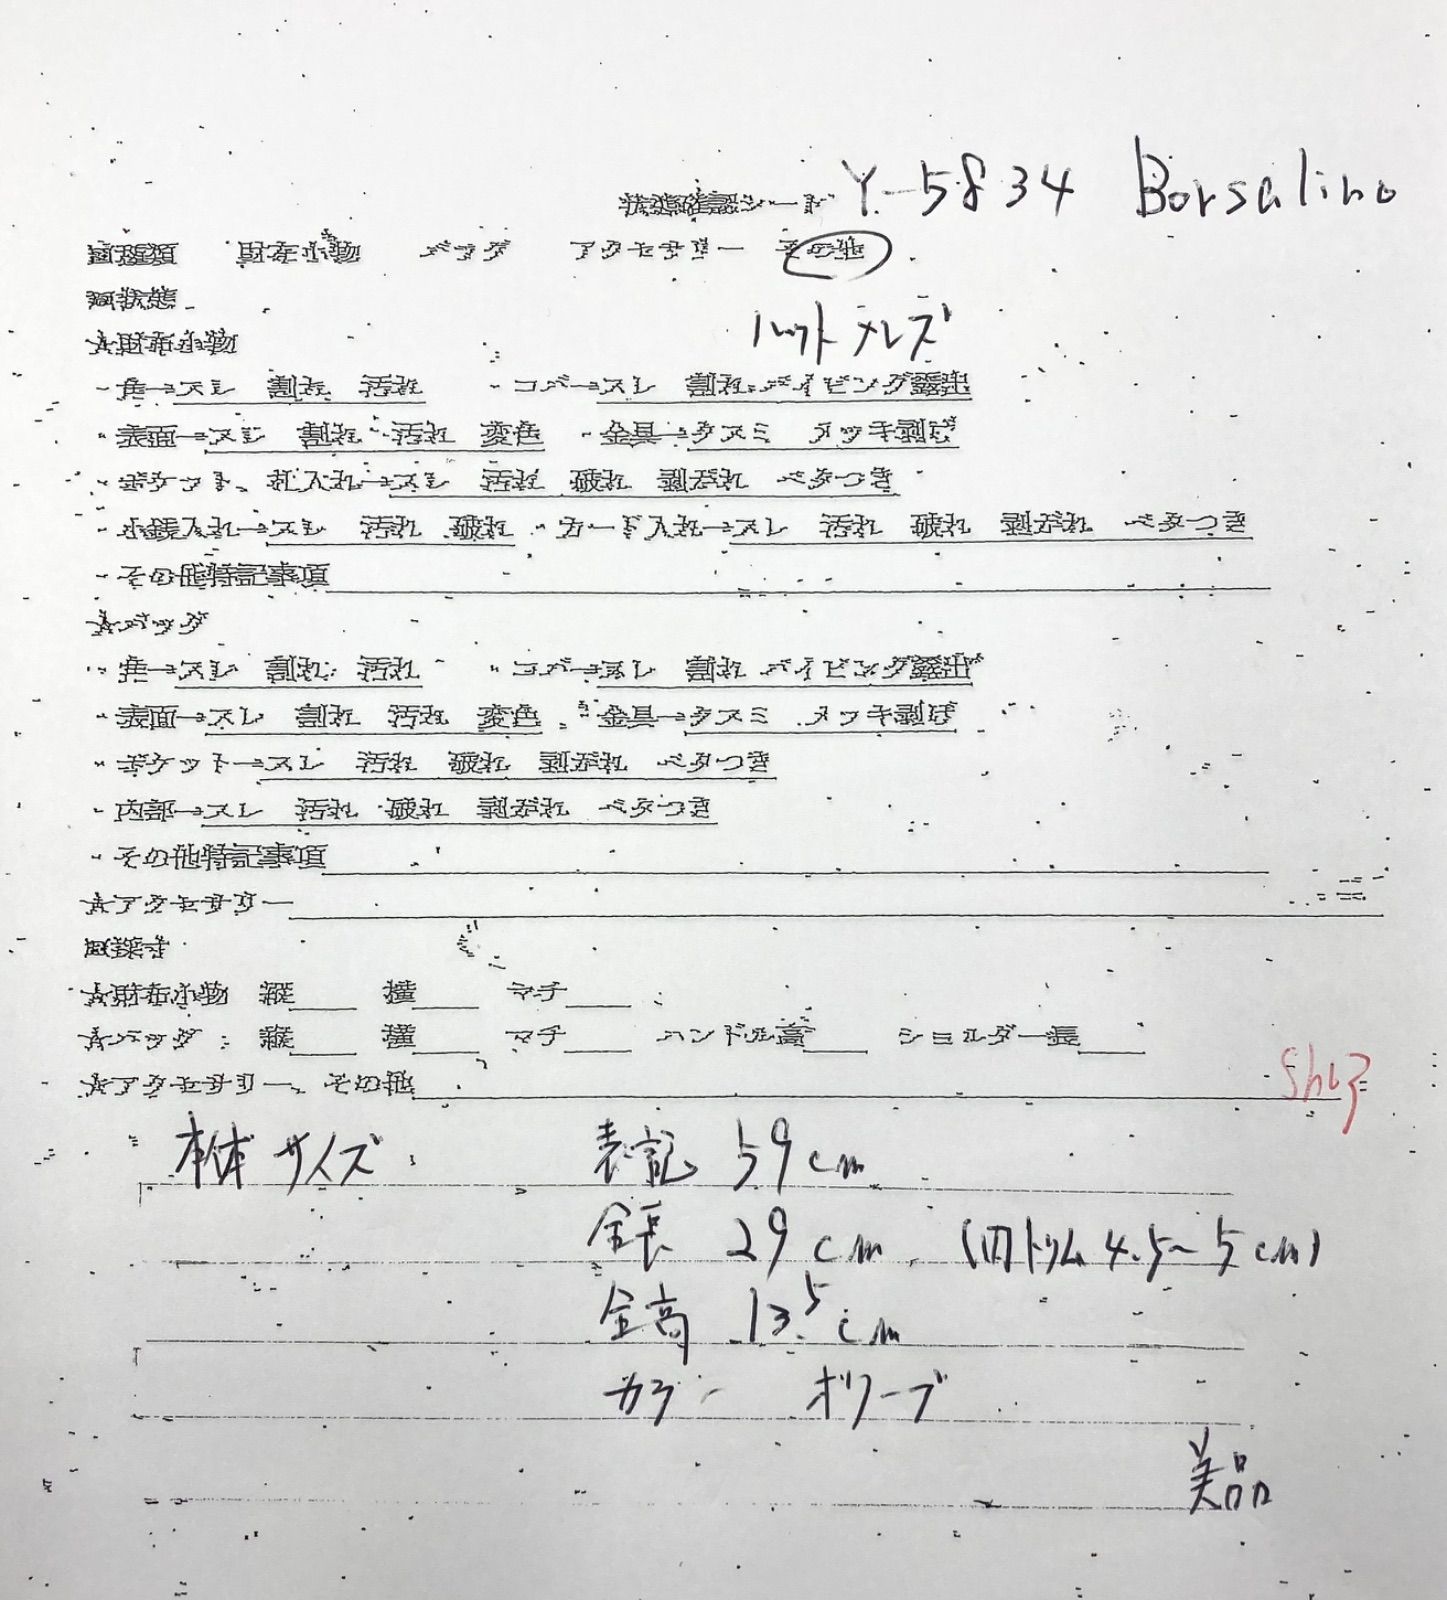 状態確認シート Y-5834 Borsalino
■種類 財布小物 バッグ アクセサリー その他
■状態
ハット メンズ
☆財布小物
・角→スレ 割れ 汚れ ・コバ→スレ 割れ パイピング露出
・表面→スレ 割れ 汚れ 変色 ・金具→クスミ メッキ剥げ
・ポケット、札入れ→スレ 汚れ 破れ 剥がれ ベタつき
・小銭入れ→スレ 汚れ 破れ ・カード入れ→スレ 汚れ 破れ 剥がれ ベタつき
・その他特記事項
☆バッグ
・角→スレ 割れ 汚れ ・コバ→スレ 割れ パイピング露出
・表面→スレ 割れ 汚れ 変色 ・金具→クスミ メッキ剥げ
・ポケット→スレ 汚れ 破れ 剥がれ ベタつき
・内部→スレ 汚れ 破れ 剥がれ ベタつき
・その他特記事項
☆アクセサリー
■採寸
☆財布小物 縦 横 マチ
☆バッグ 縦 横 マチ ハンドル高 ショルダー長
☆アクセサリー、その他
本体サイズ 表記 59cm
全長 29cm (内トリム 4.5~5cm)
全高 13.5cm
カラー オリーブ
美品